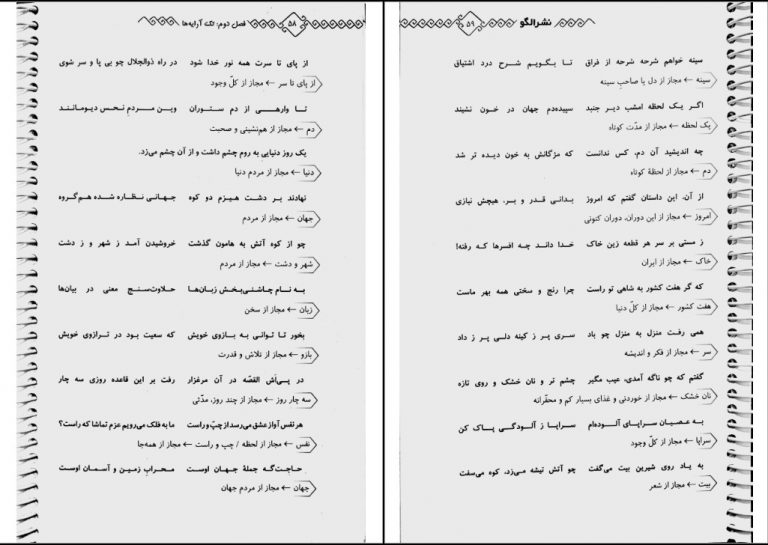 فصل دوم: تک آرایه‌ها ۵۸
از پای تا سرت همه نور خدا شود در راه ذوالجلال چو بی پا و سر شوی
از پای تا سر ← مجاز از کلّ وجود
تـا وارهـی از دم ستوران ویـن مـردم نـحس دیـومـانـند
دم ← مجاز از هم‌نشینی و صحبت
یک روز دنیایی به روم چشم داشت و از آن چشم می‌زد.
دنیا ← مجاز از مردم دنیا
نهادند بر دشت هیـزم دو کوه جهـانی نظـاره شده هم گروه
جهان ← مجاز از مردم
چو از کوه آتش به هامون گذشت خروشیدن آمـد ز شهر و ز دشت
شهر و دشت ← مجاز از مردم
بـه نـام چاشنی‌بخش زبان‌ها حلاوت‌سنج معنی در بیان‌ها
زبان ← مجاز از سخن
بخور تـا توانی به بـازوی خویش که سعیت بود در ترازوی خویش
بازو ← مجاز از تلاش و قدرت
در پـی‌اَش القصّه در آن مرغزار رفت بر این قاعده روزی سه چار
سه چار روز ← مجاز از چند روز، مدّتی
هر نفس آواز عشق می‌رسد از چپ و راست ما به فلک می‌رویم عزم تماشا که راست؟
نفس ← مجاز از لحظه / چپ و راست ← مجاز از همه‌جا
حـاجت‌گه جملهٔ جـهـان اوست محـرابِ زمین و آسمـان اوست
جهان ← مجاز از مردم جهان
۵۹ نشر الگو
سینه خواهم شرحه شرحه از فراق تـا بـگویـم شـرح درد اشتیاق
سینه ← مجاز از دل یا صاحبِ سینه
اگـر یـک لحظه امشب دیـر جنبد سپیده‌دم جهان در خـون نشیند
یک لحظه ← مجاز از مدّت کوتاه
چه اندیشید آن دم، کس ندانست که مژگانش به خون دیـده تر شد
دم ← مجاز از لحظهٔ کوتاه
از آن، این داستان گفتم که امروز بدانی قدر و بـر، هیچش نیازی
امروز ← مجاز از این دوران، دوران کنونی
ز مستی بر سر هر قطعه زین خاک خـدا دانـد چـه افسرها کـه رفته!
خاک ← مجاز از ایران
که گر هفت کشور به شاهی تو راست چرا رنج و سختی همه بهر ماست
هفت کشور ← مجاز از کلّ دنیا
همی رفـت منزل به منزل چو باد سـری پـر ز کینه دلـی پـر ز داد
سر ← مجاز از فکر و اندیشه
گفتم که چو ناگه آمدی، عیب مگیر چشم تر و نان خشک و روی تازه
نان خشک ← مجاز از خوردنی و غذای بسیار کم و محقّرانه
بـه عـصیـان سـراپـای آلـوده‌ام سـراپـا ز آلـودگـی پـاک کن
سراپا ← مجاز از کلّ وجود
به یاد روی شیرین بیت می‌گفت چو آتش تیشه می‌زد، کوه می‌سفت
بیت ← مجاز از شعر